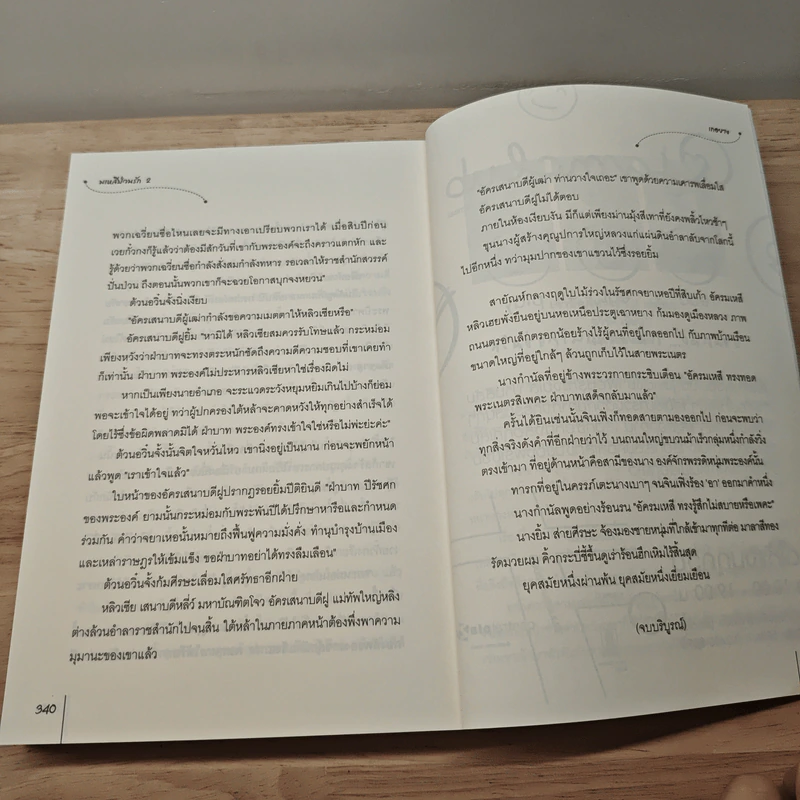 มเหสีป่วนรัก 2
พวกเฉวียนซื่อไหนเลยจะมีทางเอาเปรียบพวกเราได้ เมื่อสิบปีก่อน
เวยกั๋วกงก็รู้แล้วว่าต้องมีสักวันที่เขากับพระองค์จะถึงคราวแตกหัก และ
รู้ด้วยว่าพวกเฉวียนซื่อกำลังสั่งสมกำลังทหาร รอเวลาให้ราชสำนักสวรรค์
ปั่นป่วน ถึงตอนนั้นพวกเขาก็จะฉวยโอกาสบุกจงหยวน"
ต้วนอวิ๋นจั้งนิ่งเงียบ
"อัครเสนาบดีผู้เฒ่ากำลังขอความเมตตาให้หลิวเซียหรือ"
อัครเสนาบดีฝูยิ้ม "หามิได้ หลิวเซียสมควรรับโทษแล้ว กระหม่อม
เพียงหวังว่าฝ่าบาทจะทรงตระหนักชัดถึงความดีความชอบที่เขาเคยทำ
ก็เท่านั้น ฝ่าบาท พระองค์ไม่ประหารหลิวเซียหาใช่เรื่องผิดไม่
หากเป็นเพียงนายอำเภอ จะระแวดระวังหยุมหยิมเกินไปบ้างก็ย่อม
พอจะเข้าใจได้อยู่ ทว่าผู้ปกครองใต้หล้าจะคาดหวังให้ทุกอย่างสำเร็จได้
โดยไร้ซึ่งข้อผิดพลาดมิได้ ฝ่าบาท พระองค์ทรงเข้าใจใช่หรือไม่พ่ะย่ะค่ะ"
ต้วนอวิ๋นจั้งนั้นจิตใจหวั่นไหว เขานิ่งอยู่เป็นนาน ก่อนจะพยักหน้า
แล้วพูด "เราเข้าใจแล้ว"
ใบหน้าของอัครเสนาบดีฝูปรากฏรอยยิ้มปีติยินดี "ฝ่าบาท ปีรัชศก
ของพระองค์ ยามนั้นกระหม่อมกับพระพันปีได้ปรึกษาหารือและกำหนด
ร่วมกัน คำว่าจยาเหอนั้นหมายถึงฟื้นฟูความมั่งคั่ง ทำนุบำรุงบ้านเมือง
และเหล่าราษฎรให้เข้มแข็ง ขอฝ่าบาทอย่าได้ทรงลืมเลือน"
ต้วนอวิ๋นจั้งก้มศีรษะเลื่อมใสศรัทธาอีกฝ่าย
หลิวเซีย เสนาบดีหลี่ว์ มหาบัณฑิตโจว อัครเสนาบดีฝู แม่ทัพใหญ่หลิง
ต่างล้วนอำลาราชสำนักไปจนสิ้น ใต้หล้าในภายภาคหน้าต้องพึ่งพาความ
มุมานะของเขาแล้ว
340
"อัครเสนาบดีผู้เฒ่า ท่านวางใจเถอะ" เขาพูดด้วยความเคารพเลื่อมใส
อัครเสนาบดีฝูไม่ได้ตอบ
ภายในห้องเงียบงัน มีก็แต่เพียงม่านมุ้งสีเทาที่ยังคงพลิ้วไหวช้าๆ
ขุนนางผู้สร้างคุณูปการใหญ่หลวงแก่แผ่นดินอำลาลับจากโลกนี้
ไปอีกหนึ่ง ทว่ามุมปากของเขาแขวนไว้ซึ่งรอยยิ้ม
สายัณห์กลางฤดูใบไม้ร่วงในรัชศกจยาเหอปีที่สิบเก้า อัครมเหสี
หลิวเฮยพั่งยืนอยู่บนหอเหนือประตูเฉาหยาง ก้มมองดูเมืองหลวง ภาพ
ถนนตรอกเล็กตรอกน้อยร้างไร้ผู้คนที่อยู่ไกลออกไป กับภาพบ้านเรือน
ขนาดใหญ่ที่อยู่ใกล้ๆ ล้วนถูกเก็บไว้ในสายพระเนตร
นางกำนัลที่อยู่ข้างพระวรกายกระซิบเตือน "อัครมเหสี ทรงทอด
พระเนตรสิเพคะ ฝ่าบาทเสด็จกลับมาแล้ว"
ครั้นได้ยินเช่นนั้นจินเฟิ่งก็ทอดสายตามองออกไป ก่อนจะพบว่า
ทุกสิ่งจริงดังคำที่อีกฝ่ายว่าไว้ บนถนนใหญ่ขบวนม้าเร็วกลุ่มหนึ่งกำลังวิ่ง
ตรงเข้ามา ที่อยู่ด้านหน้าคือสามีของนาง องค์จักรพรรดิหนุ่มพระองค์นั้น
ทารกที่อยู่ในครรภ์เตะนางเบาๆ จนจินเฟิ่งร้อง 'อา' ออกมาคำหนึ่ง
นางกำนัลพูดอย่างร้อนรน "อัครมเหสี ทรงรู้สึกไม่สบายหรือเพคะ"
นางยิ้ม ส่ายศีรษะ จ้องมองชายหนุ่มที่ใกล้เข้ามาทุกทีต่อ มาลาสีทอง
รัดมวยผม คิ้วกระบี่ชี้ขึ้นดูเร่าร้อนฮึกเหิมไร้สิ้นสุด
ยุคสมัยหนึ่งผ่านพ้น ยุคสมัยหนึ่งเยี่ยมเยือน
(จบบริบูรณ์)